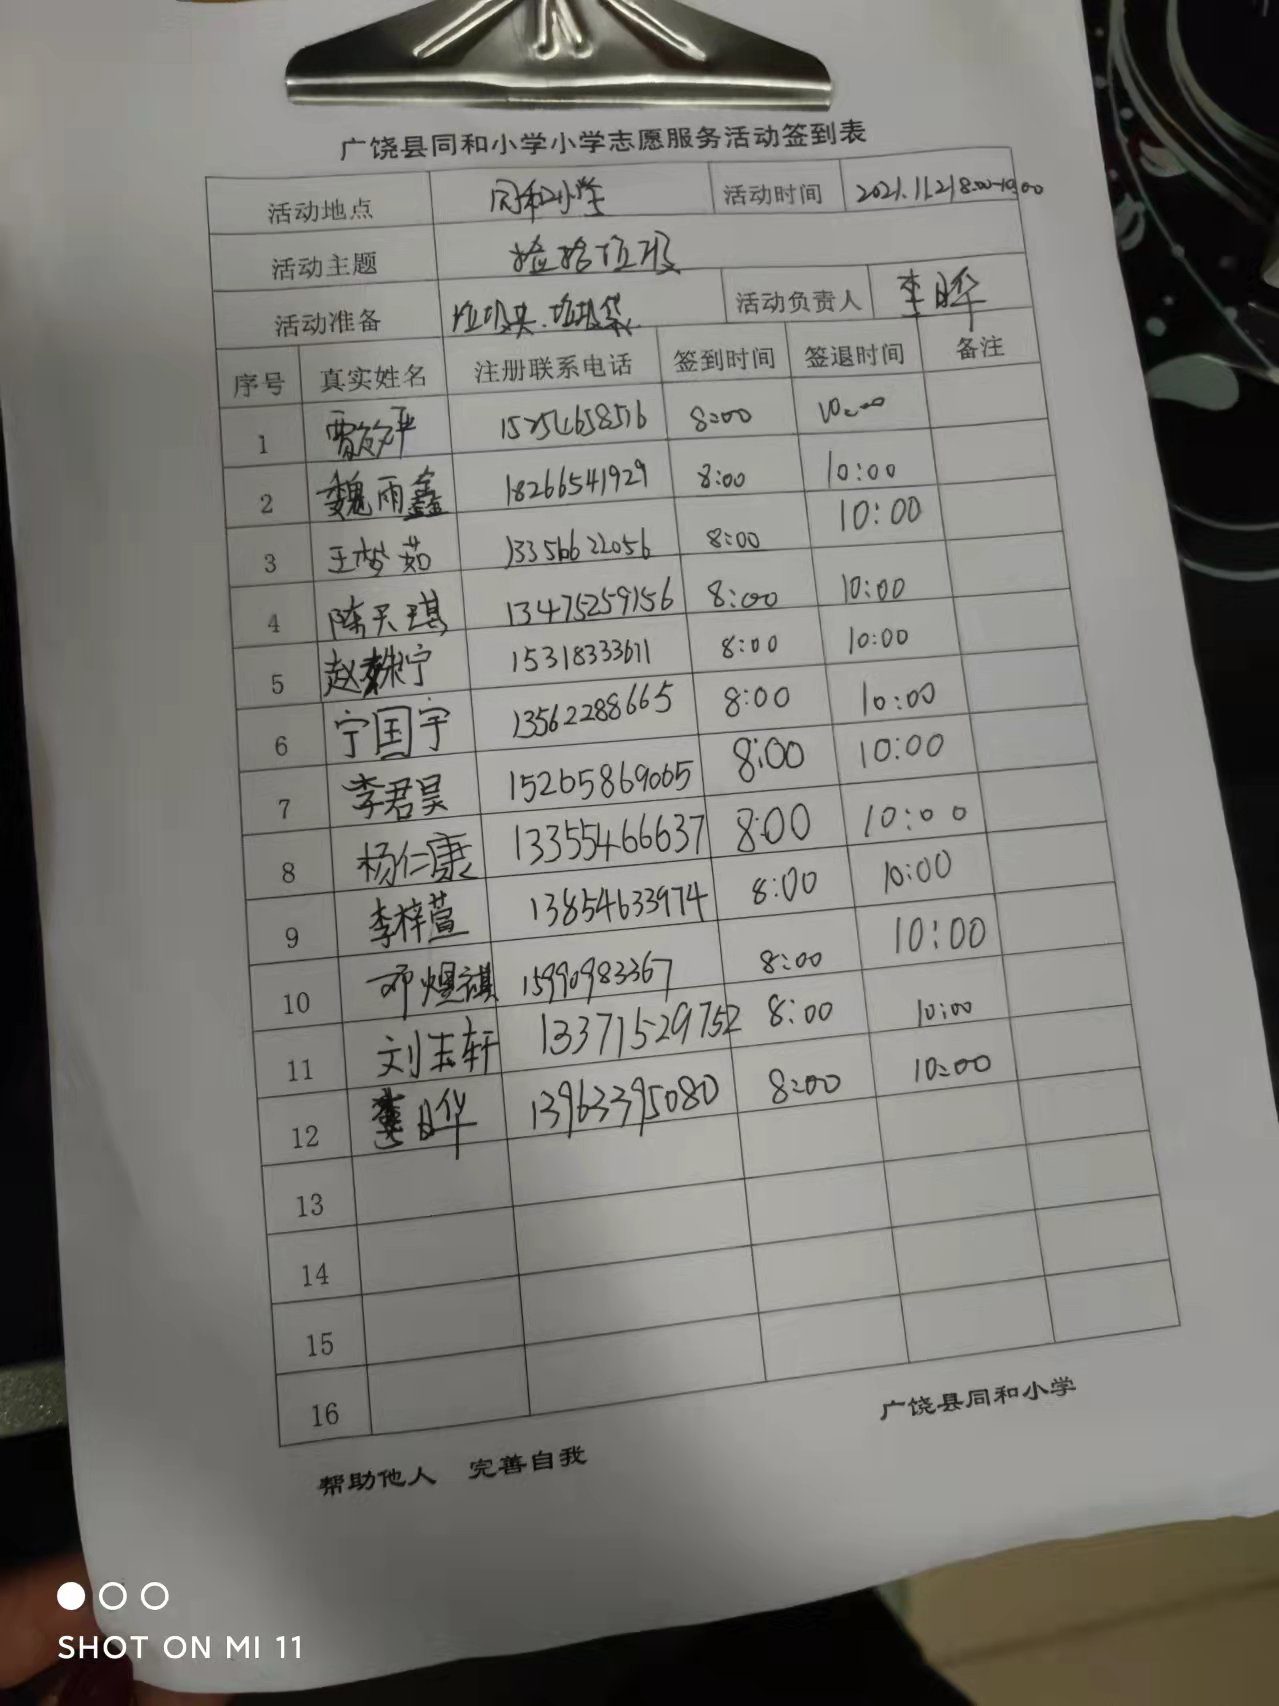 广饶县同和小学小学志愿服务活动签到表
活动地点 同和小学 活动时间 2021.11.21 8:00-10:00
活动主题 捡拾垃圾
活动准备 垃圾夹、垃圾袋 活动负责人 李日华
序号 真实姓名 注册联系电话 签到时间 签退时间 备注
1 15254658516 8:00 10:00
2 魏雨鑫 18266541929 8:00 10:00
3 王梦茹 13356622056 8:00 10:00
4 陈天琪 13475259156 8:00 10:00
5 赵姝宁 15318333611 8:00 10:00
6 宁国宇 13562288665 8:00 10:00
7 李君昊 15265869065 8:00 10:00
8 杨仁康 13355466637 8:00 10:00
9 李梓萱 13854633974 8:00 10:00
10 邓煜祺 15990983367 8:00 10:00
11 刘玉轩 13371529752 8:00 10:00
12 李日华 13963395080 8:00 10:00
13
14
15
16
广饶县同和小学
帮助他人 完善自我
SHOT ON MI 11